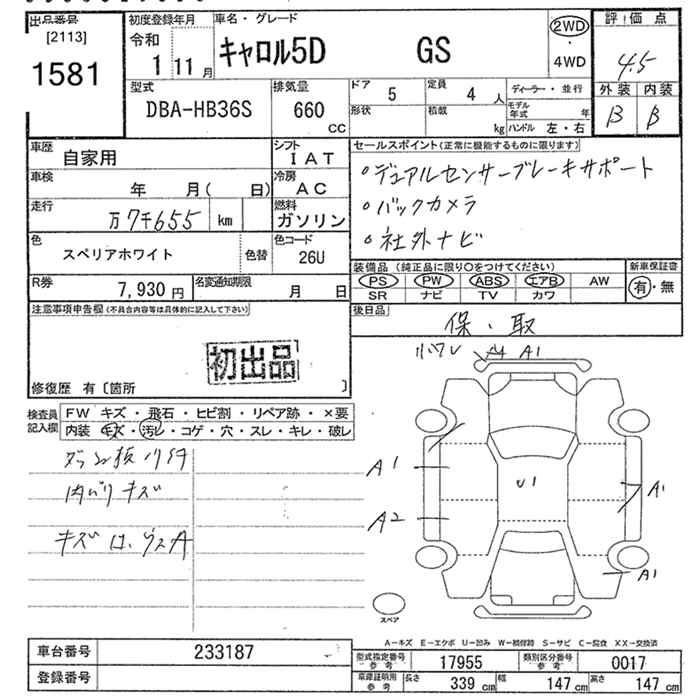 出品番号 初度登録年月 車名・グレード 評価点
[2113] 令和 キャロル5D GS 2WD ・ 4WD 4.5
1581 1 11月
型式 排気量 ドア 5 定員 4人 ディーラー・並行 外装 内装
DBA-HB36S 660 CC 形状 積載 kg モデル年式 年 ハンドル 左・右 B B
車歴 自家用 シフト IAT セールスポイント(正常に機能するものに限ります)
車検 年 月( 日) 冷房 AC
。デュアルセンサーブレーキサポート
走行 万7千655 km 燃料 ガソリン
。バックカメラ
色 スペリアホワイト 色替 色コード 26U
。社外ナビ
装備品(純正品に限り○をつけてください) 新車保証書
R券 7,930円 名変通知期限 月 日
PS PW ABS エアB AW 有・無
SR ナビ TV カワ
注意事項申告欄(不具合内容等は具体的に記入して下さい)
後日品 保・取
初出品
修復歴 有〔箇所 〕
検査員記入欄 FW キズ・飛石・ヒビ割・リペア跡・×要
内装 キズ・汚レ・コゲ・穴・スレ・キレ・破レ
A1
内バリ キズ
A1 U1 A1
A2
A1
スペア
A-キズ E-エクボ U-凹み W-補修跡 S-サビ C-腐食 XX-交換済
車台番号 233187
型式指定番号 参考 17955 類別区分番号 参考 0017
登録番号
車庫証明用 参考 長さ 339cm 幅 147cm 高さ 147cm